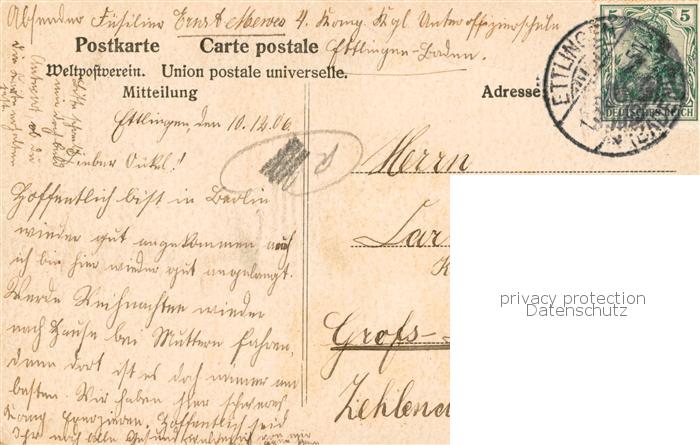 Absender Füsilier Ernst Mewes 4. Komp. Kgl. Unteroffizierschule
Ettlingen-Baden.
Postkarte Carte postale
Weltpostverein. Union postale universelle.
Mitteilung
Adresse
ETTLINGEN
5 5
DEUTSCHES REICH
Ettlingen, den 10.12.06.
Lieber Onkel!
Hoffentlich bist in Berlin
wieder gut angekommen auch
ich bin hier wieder gut angelangt.
Werde Weihnachten wieder
nach Hause bei Muttern fahren,
denn dort ist es doch immer am
besten. Wir haben hier schweres
Komp. Exerzieren. Hoffentlich seid
Ihr noch alle gesund
Herrn
Gross-
Zehlend
privacy protection
Datenschutz